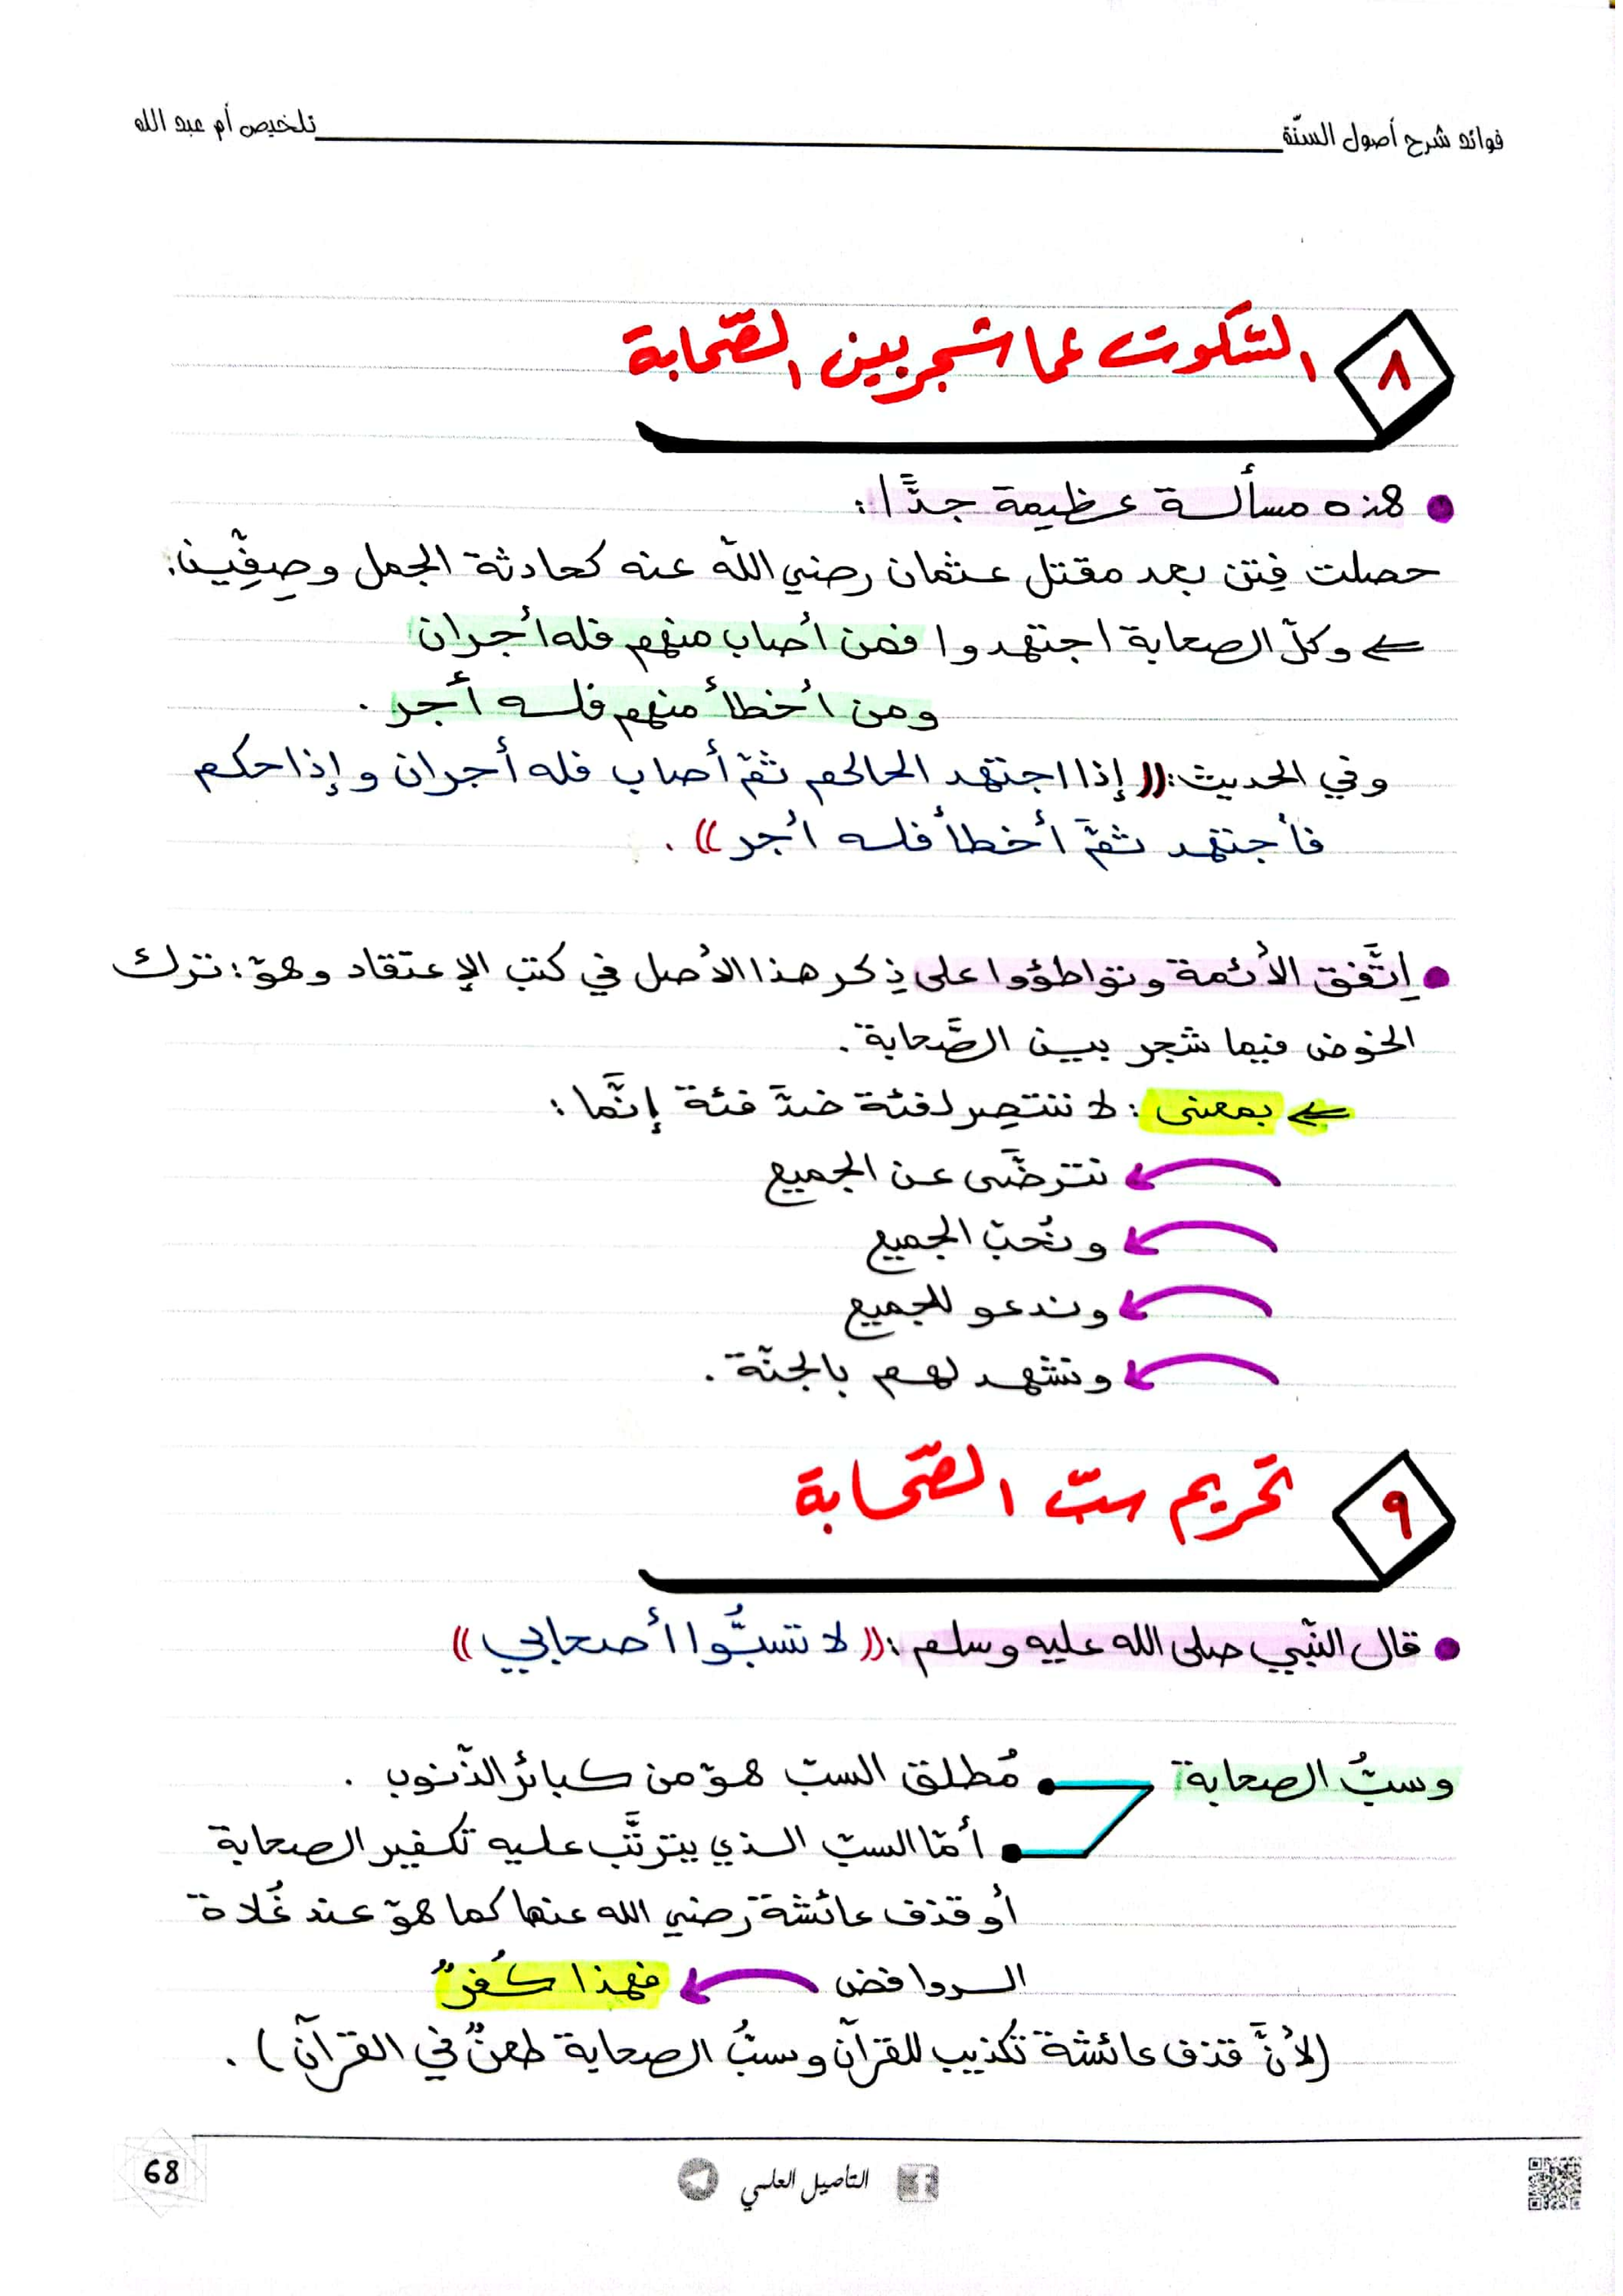 فوائد شرح أصول السنّة
تلخيص أم عبد الله
٨ السّكوت عما شجر بين الصّحابة
هذه مسألة عظيمة جدًّا:
حصلت فِتن بعد مقتل عثمان رضي اللّه عنه كحادثة الجمل وصِفِّين:
وكلّ الصحابة اجتهدوا فمن أصاب منهم فله أجران
ومن أخطأ منهم فله أجر.
وفي الحديث: ((إذا اجتهد الحاكم ثمّ أصاب فله أجران وإذا حكم
فأجتهد ثمَّ أخطأ فله أجر)).
اِتَّفق الأئمة وتواطؤوا على ذِكر هذا الأصل في كتب الإعتقاد وهوّ: نترك
الخوض فيما شجر بين الصَّحابة.
بمعنى: لا ننتصِر لفئة ضدَّ فئة إنَّما:
نترضَّى عن الجميع
ونُحبّ الجميع
وندعو للجميع
ونشهد لهم بالجنّة.
٩ تحريم سبّ الصّحابة
قال النّبي صلى الله عليه وسلم: ((لا تسُبُّوا أصحابي))
وسبُّ الصحابة
مُطلق السبّ هوّ من كبائر الذّنوب.
أمّا السبّ الذي يترتَّب عليه تكفير الصحابة
أو قذف عائشة رضي الله عنها كما هوّ عند غُلاة
الروافض فهذا كُفرٌ
(لأنَّ قذف عائشة تكذيب للقرآن وسبُّ الصحابة طعنٌ في القرآن).
التأصيل العلمي
68